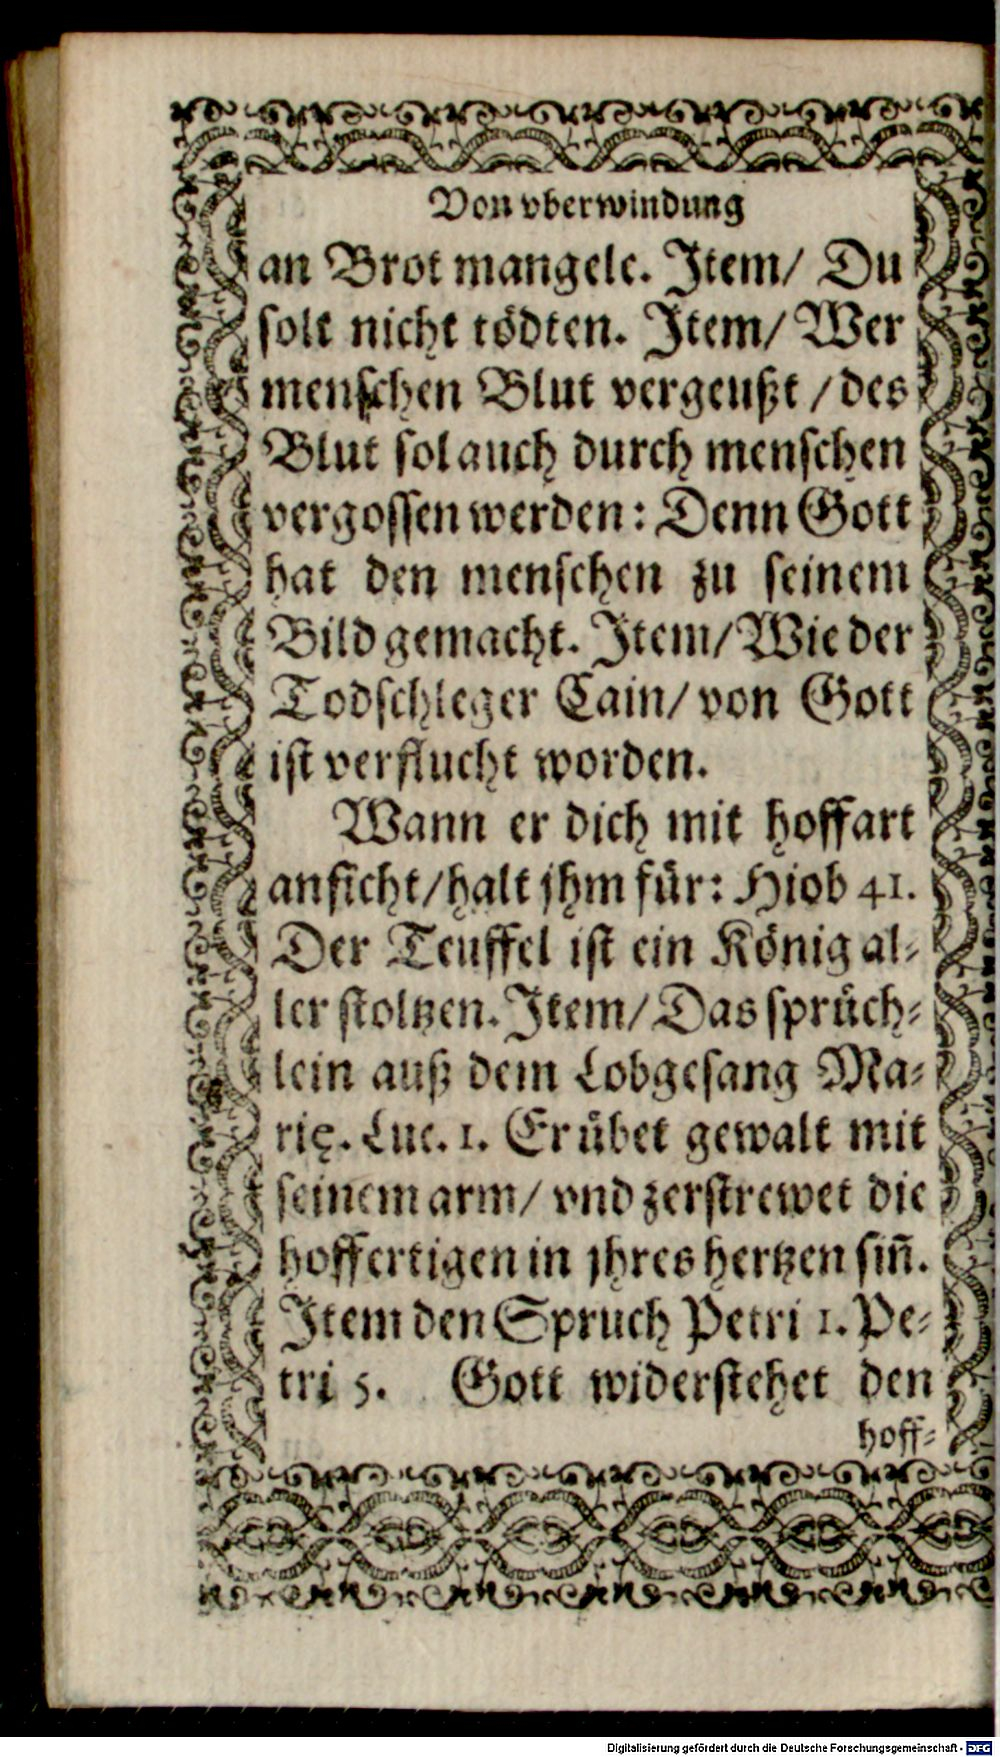 Von vberwindung
an Brot mangele. Item/ Du
solt nicht tödten. Item/ Wer
menschen Blut vergeußt / des
Blut sol auch durch menschen
vergossen werden: Denn Gott
hat den menschen zu seinem
Bild gemacht. Item/ Wie der
Todschleger Cain/ von Gott
ist verflucht worden.
Wann er dich mit hoffart
anficht/ halt jhm für: Hiob 41.
Der Teuffel ist ein König al-
ler stoltzen. Item/ Das sprüch-
lein auß dem Lobgesang Ma-
rię. Luc. 1. Er übet gewalt mit
seinem arm/ vnd zerstrewet die
hoffertigen in jhres hertzen siñ.
Item den Spruch Petri 1. Pe-
tri 5. Gott widerstehet den
hoff-
Digitalisierung gefördert durch die Deutsche Forschungsgemeinschaft - DFG